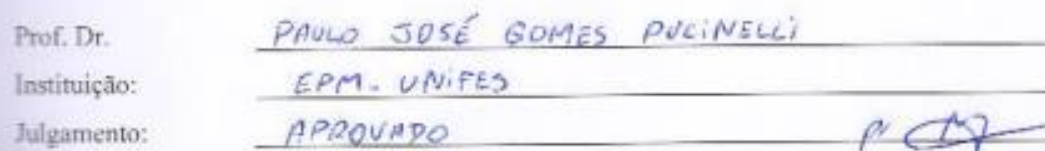 Prof. Dr. PAULO JOSÉ GOMES PUCINELLI
Instituição: EPM - UNIFES
Julgamento: APROVADO